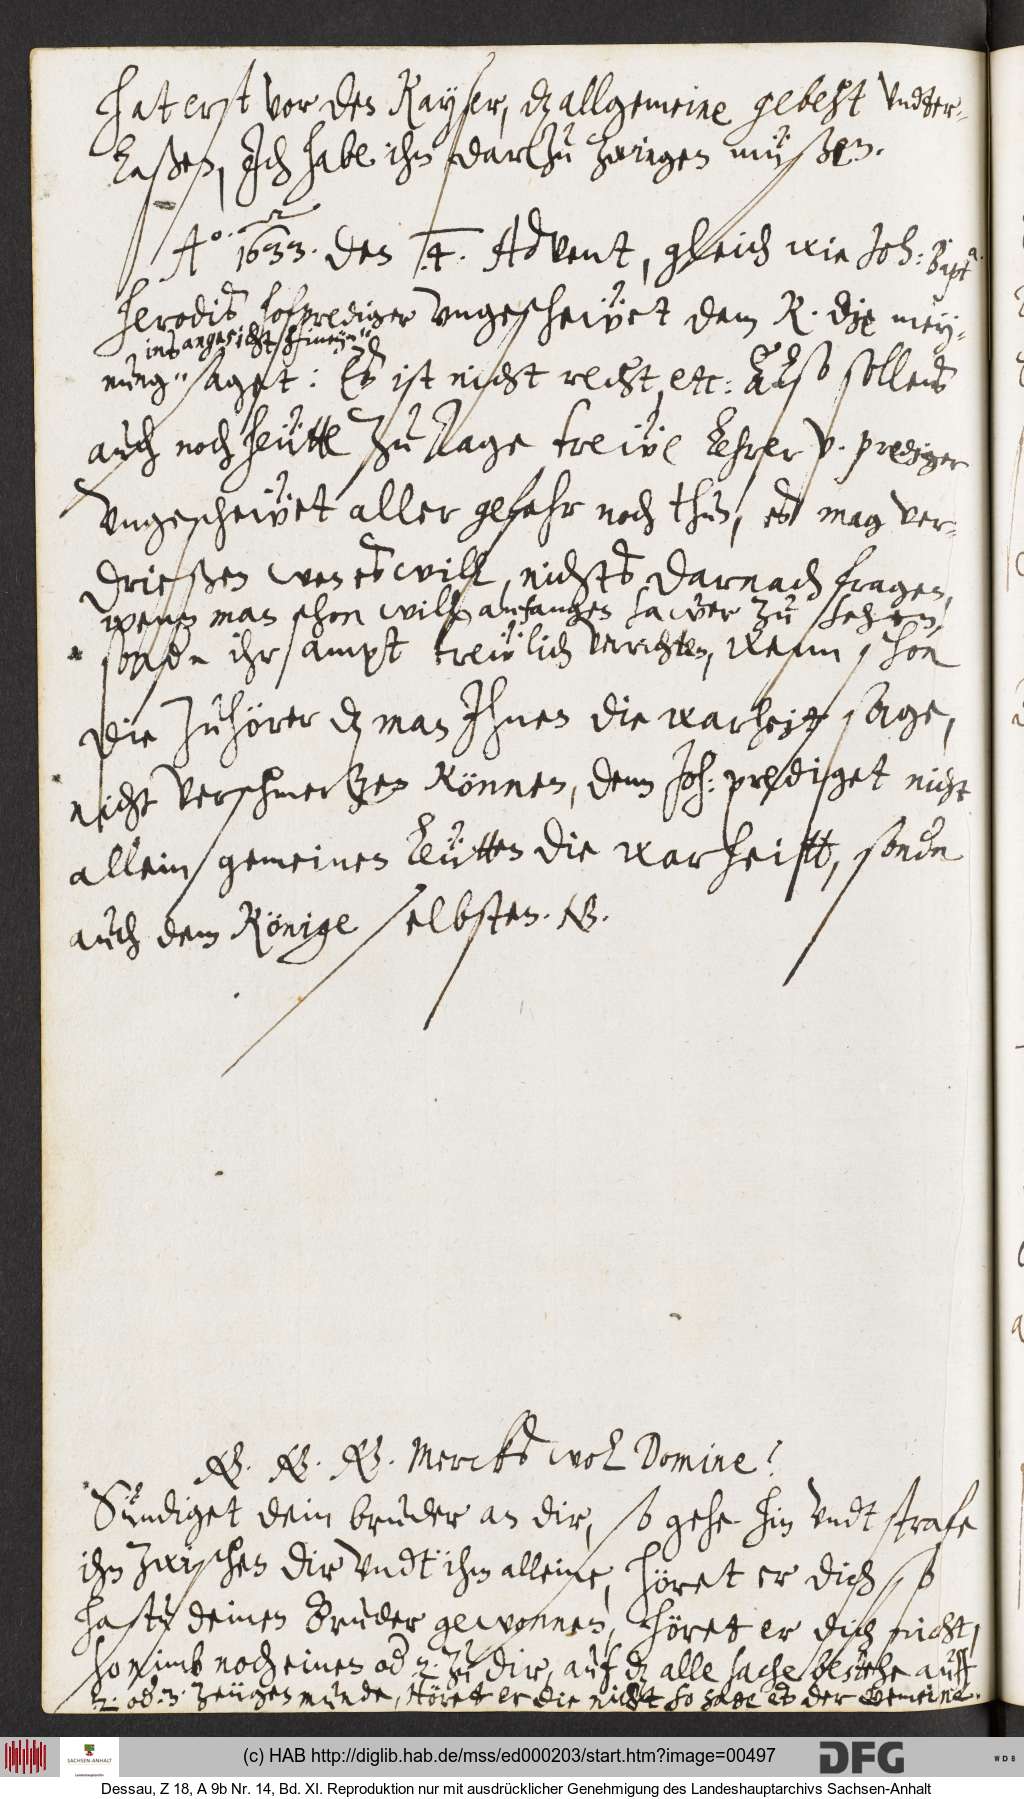 hat erst vor den Kayser, dz allgemeine gebeht vndter-
laßen, Ich habe ihn dartzu zwingen müßen.
Ao. 1633. den 4. Advent, gleich wie Joh: Bapt
Herodis hofprediger vngescheüet dem K. die mey-
ins angesicht hinein
nung saget: Es ist nicht recht, etc: Allso sollens
auch noch heütte zu tage treüe Lehrer v. prediger
vngescheüet aller gefahr noch thun, es mag ver-
drießen wen es will, nichts darnach fragen,
wenn man schon will anfangen sawer zu sehen,
sondn ihr ampt treülich verrichten, wenn schon
die zuhörer dz man Ihnen die warheit sage,
nicht verschmertzen können, denn Joh: prediget nicht
allein gemeinen Leütten die warheitt, sondn
auch dem Könige selbsten. NB.
NB. NB. NB. Mercks wol Domine!
Sündiget dein bruder an dir, so gehe hin vndt strafe
ihn zwischen dir vndt ihm alleine, höret er dich, so
hastu deinen Bruder gewonnen, höret er dich nicht,
so nimb noch einen od 2. zu dir, auf dz alle sache bestehe auff
2. od. 3. zeügen munde, Höret er die nicht so sage es der Gemeine.
(c) HAB http://diglib.hab.de/mss/ed000203/start.htm?image=00497
SACHSEN-ANHALT
DFG
WDB
Dessau, Z 18, A 9b Nr. 14, Bd. XI. Reproduktion nur mit ausdrücklicher Genehmigung des Landeshauptarchivs Sachsen-Anhalt